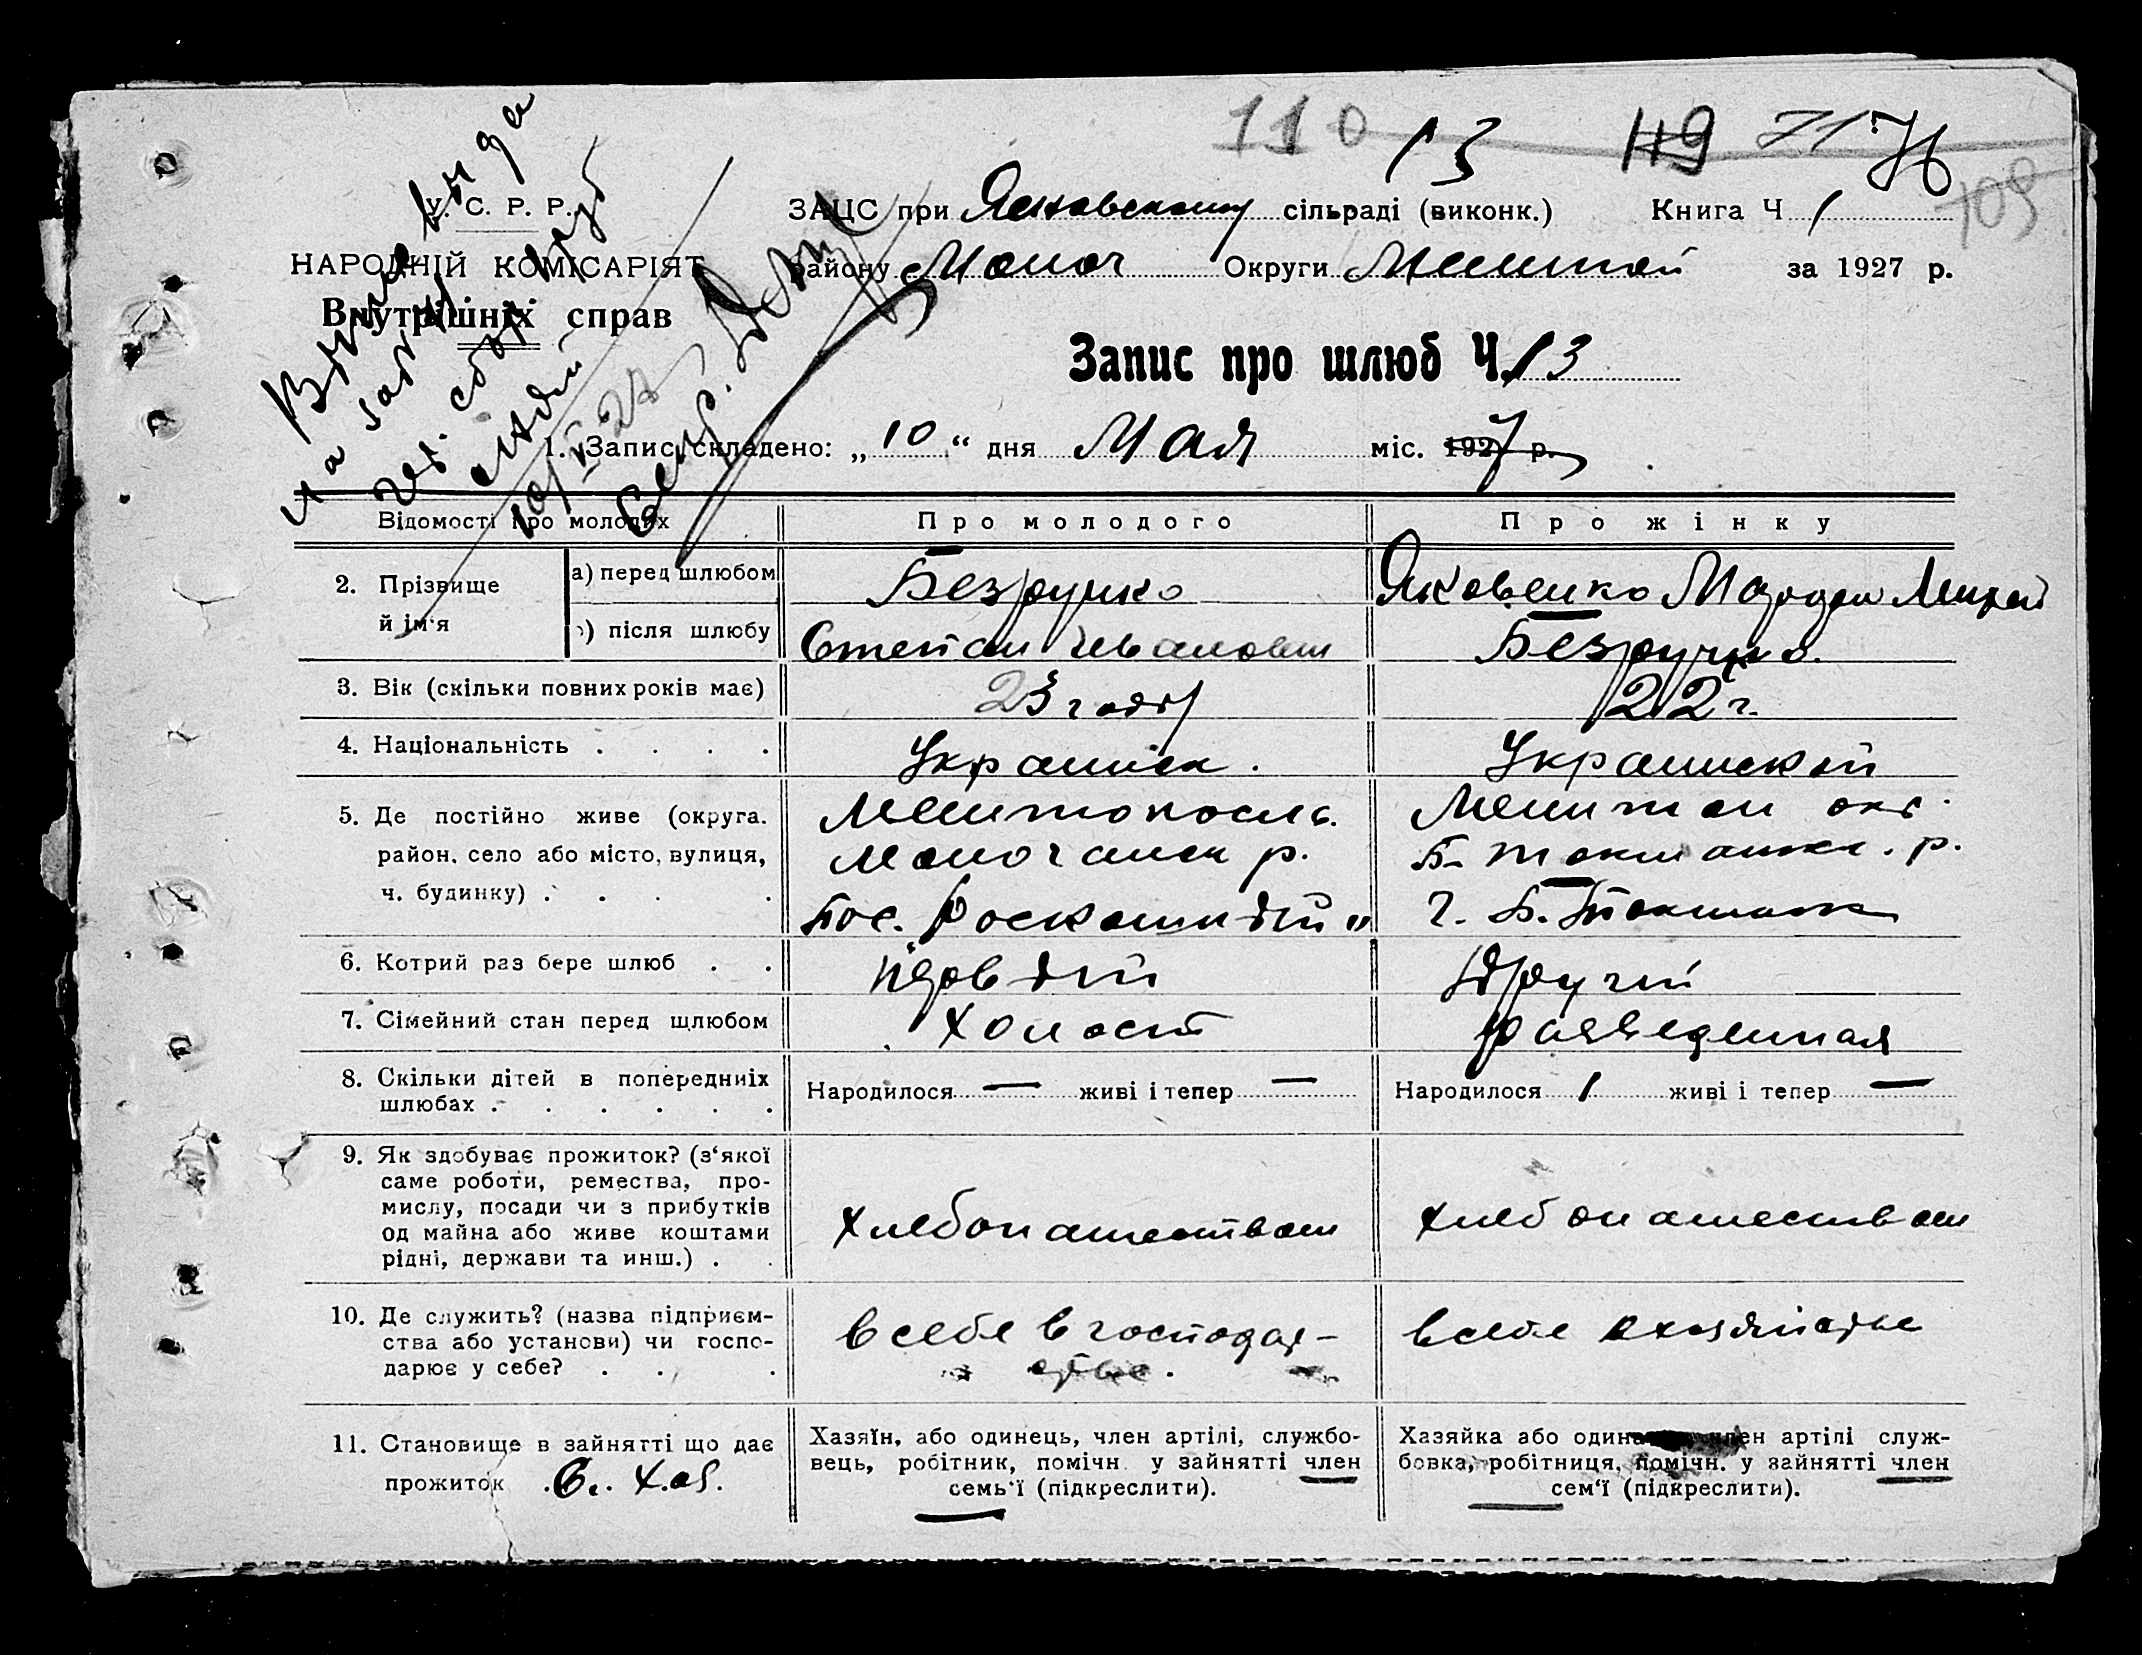 110 13 119 71 76
109
У. С. Р. Р.
НАРОДНІЙ КОМІСАРІЯТ
Внутрішніх справ
ЗАЦС при сільраді (виконк.) Книга Ч 1
району Молоч Округи за 1927 р.
Запис про шлюб Ч. 13
1. Запис складено: „ 10 “ дня Мая міс. 1927 р.
Відомості про молодих
Про молодого
Про жінку
2. Прізвище й ім‘я
а) перед шлюбом
Безручко
Яковенко
б) після шлюбу
Степан Иванович
Безручко.
3. Вік (скільки повних років має)
23 года
22 г.
4. Національність . . . .
Украинск.
Украинской
5. Де постійно живе (округа.
район, село або місто, вулиця,
ч. будинку) . . . .
Мелитопольс.
Молочанск р.
Пос. „Роскошный“
Мелитоп окг.
Б-Токмакск. р.
г. Б. Токмак
6. Котрий раз бере шлюб . .
первый
другий
7. Сімейний стан перед шлюбом
холост
разведенная
8. Скільки дітей в попередніх
шлюбах . . . . . .
Народилося — живі і тепер —
Народилося 1 живі і тепер —
9. Як здобуває прожиток? (з‘якої
саме роботи, ремества, про-
мислу, посади чи з прибутків
од майна або живе коштами
рідні, держави та инш.) . .
хлебопашеством
хлебопашеством
10. Де служить? (назва підприєм-
ства або установи) чи госпо-
дарює у себе? . . .
в себе в господар-
стве.
в себе хозяйстве
11. Становище в зайнятті що дає
прожиток С. Хоз.
Хазяїн, або одинець, член артілі, службо-
вець, робітник, помічн. у зайнятті член
семь‘ї (підкреслити).
Хазяйка або член артілі служ-
бовка, робітниця, помічн. у зайнятті член
сем‘ї (підкреслити).